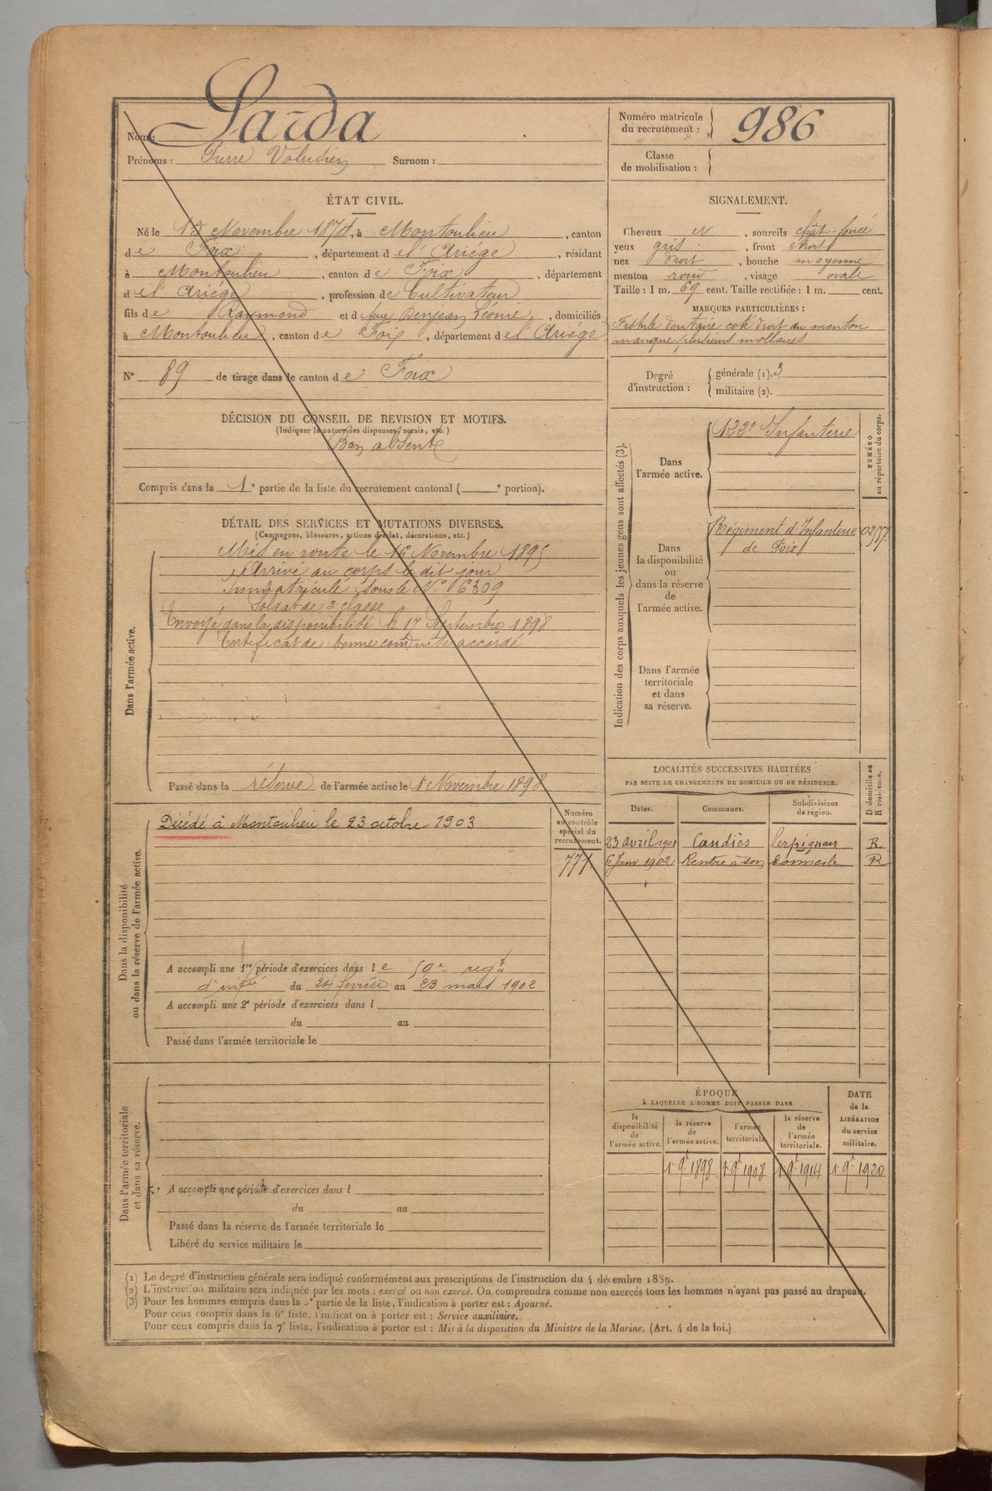 Nom: Sarda
Prénoms : Pierre Volusien Surnom :
Numéro matricule
du recrutement : 986
Classe
de mobilisation :
ÉTAT CIVIL.
Né le 13 Novembre 1874, à Montoulieu, canton
de Foix, département de l'Ariége, résidant
à Montoulieu, canton de Foix, département
de l'Ariége, profession de Cultivateur
fils de Raymond et de Léonie, domiciliés
à Montoulieu, canton de Foix, département de l'Ariége
N° 89 de tirage dans le canton de Foix
SIGNALEMENT.
Cheveux et, sourcils chât. foncé
yeux gris, front étroit
nez droit, bouche moyenne
menton rond, visage ovale
Taille : 1 m. 69 cent. Taille rectifiée : 1 m. cent.
MARQUES PARTICULIÈRES :
Fistule dentaire coté droit du menton
manque plusieurs mollaires
Degré
d'instruction :
générale (1). 3
militaire (2).
DÉCISION DU CONSEIL DE REVISION ET MOTIFS.
(Indiquer la nature des dispenses, sursis, etc.)
Bon absent
Compris dans la 1e partie de la liste du recrutement cantonal ( e portion).
DÉTAIL DES SERVICES ET MUTATIONS DIVERSES.
(Campagnes, blessures, actions d'éclat, décorations, etc.)
Dans l'armée active.
Mis en route le 16 Novembre 1895
Arrivé au corps le dit jour
Immatriculé sous le N° 6309
Soldat de 2e classe
Envoyé dans la disponibilité le 17 Septembre 1898
Certificat de bonne conduite accordé
Passé dans la réserve de l'armée active le 1 Novembre 1898
Indication des corps auxquels les jeunes gens sont affectés (3).
Dans
l'armée active.
133e Infanterie
NUMÉRO
au répertoire du corps.
Dans
la disponibilité
ou
dans la réserve
de
l'armée active.
Régiment d'Infanterie
de Foix
Dans l'armée
territoriale
et dans
sa réserve.
LOCALITÉS SUCCESSIVES HABITÉES
PAR SUITE DE CHANGEMENTS DE DOMICILE OU DE RÉSIDENCE.
Dates. Communes. Subdivisions
de région.
D domicile ou
R résidence.
23 avril 1901 Caudiès Perpignan R
6 Janv 1902 Rentre à son domicile R
Dans la disponibilité
ou dans la réserve de l'armée active.
Décédé à Montoulieu le 23 octobre 1903
Numéro
au contrôle
spécial du
recrutement.
771
A accompli une 1re période d'exercices dans le 59e regt
d'infie du 24 février au 23 mars 1902
A accompli une 2e période d'exercices dans l
du au
Passé dans l'armée territoriale le
Dans l'armée territoriale
et dans sa réserve.
A accompli une période d'exercices dans l
du au
Passé dans la réserve de l'armée territoriale le
Libéré du service militaire le
ÉPOQUE
À LAQUELLE L'HOMME DOIT PASSER DANS
la
disponibilité
de
l'armée active.
la réserve
de
l'armée active.
l'armée
territoriale
la réserve
de
l'armée
territoriale.
DATE
de la
LIBÉRATION
du service
militaire.
1 9e 1898 1 9e 1908 1 9e 1914 1 9e 1920
(1) Le degré d'instruction générale sera indiqué conformément aux prescriptions de l'instruction du 4 décembre 1889.
(2) L'instruction militaire sera indiquée par les mots : exercé ou non exercé. On comprendra comme non exercés tous les hommes n'ayant pas passé au drapeau.
(3) Pour les hommes compris dans la partie de la liste, l'indication à porter est : Ajourné.
Pour ceux compris dans la 6e liste, l'indication à porter est : Service auxiliaire.
Pour ceux compris dans la 7e liste, l'indication à porter est : Mis à la disposition du Ministre de la Marine. (Art. 4 de la loi.)